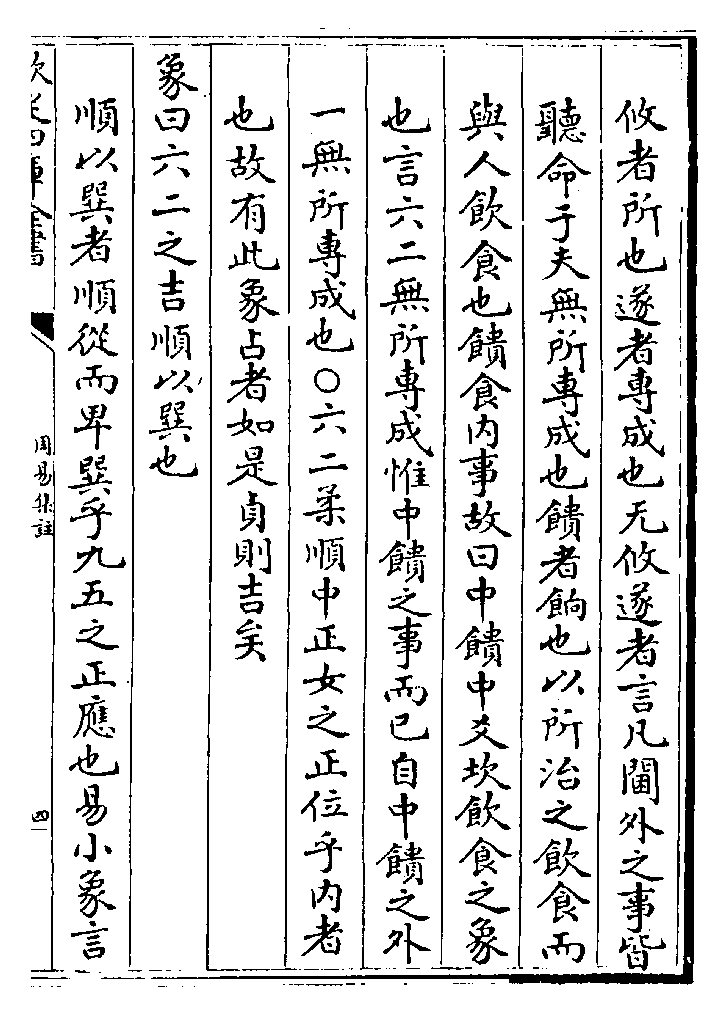 攸者所也遂者專成也无攸遂者言凡閫外之事皆
聽命于夫無所專成也饋者餉也以所治之飲食而
與人飲食也饋食内事故曰中饋中爻坎飲食之象
也言六二無所專成惟中饋之事而已自中饋之外
一無所專成也○六二柔順中正女之正位乎内者
也故有此象占者如是貞則吉矣
象曰六二之吉順以巽也
順以巽者順從而卑巽乎九五之正應也易小象言
欽定四庫全書
周易集註
四